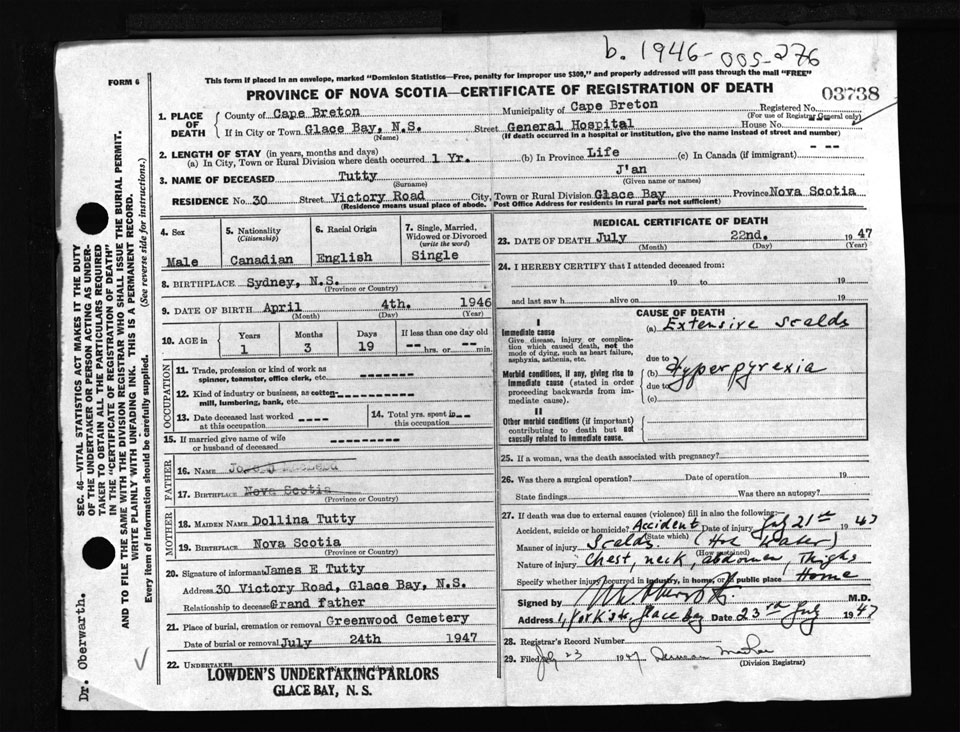 b. 1946-005-276
FORM 6
This form if placed in an envelope, marked "Dominion Statistics—Free, penalty for improper use $300," and properly addressed will pass through the mail "FREE"
PROVINCE OF NOVA SCOTIA—CERTIFICATE OF REGISTRATION OF DEATH
03738
1. PLACE OF DEATH
County of Cape Breton Municipality of Cape Breton Registered No.
(For use of Registrar General only)
If in City or Town Glace Bay, N.S. Street General Hospital House No.
(Name) (If death occurred in a hospital or institution, give the name instead of street and number)
2. LENGTH OF STAY (in years, months and days)
(a) In City, Town or Rural Division where death occurred 1 Yr. (b) In Province Life (c) In Canada (if immigrant) -- --
3. NAME OF DECEASED Tutty J'an
(Surname) (Given name or names)
RESIDENCE No. 30 Street Victory Road City, Town or Rural Division Glace Bay Province Nova Scotia
(Residence means usual place of abode. Post Office Address for residents in rural parts not sufficient)
4. Sex
Male
5. Nationality
(Citizenship)
Canadian
6. Racial Origin
English
7. Single, Married, Widowed or Divorced
(write the word)
Single
8. BIRTHPLACE Sydney, N.S.
(Province or Country)
9. DATE OF BIRTH April 4th. 1946
(Month) (Day) (Year)
10. AGE in Years Months Days If less than one day old
1 3 19 -- hrs. or -- min.
OCCUPATION
11. Trade, profession or kind of work as
spinner, teamster, office clerk, etc. --------
12. Kind of industry or business, as cotton-
mill, lumbering, bank, etc. ---------
13. Date deceased last worked
at this occupation ----
14. Total yrs. spent in
this occupation --
15. If married give name of wife
or husband of deceased ---------
FATHER
16. NAME
17. BIRTHPLACE Nova Scotia
(Province or Country)
MOTHER
18. MAIDEN NAME Dollina Tutty
19. BIRTHPLACE Nova Scotia
(Province or Country)
20. Signature of informant James E Tutty
Address 30 Victory Road, Glace Bay, N.S.
Relationship to deceased Grand father
21. Place of burial, cremation or removal Greenwood Cemetery
Date of burial or removal July 24th 1947
22. UNDERTAKER
LOWDEN'S UNDERTAKING PARLORS
GLACE BAY, N. S.
MEDICAL CERTIFICATE OF DEATH
23. DATE OF DEATH July 22nd. 1947
(Month) (Day) (Year)
24. I HEREBY CERTIFY that I attended deceased from:
19 to 19
and last saw h alive on 19
CAUSE OF DEATH
I
Immediate cause
Give disease, injury or complication which caused death, not the mode of dying, such as heart failure, asphyxia, asthenia, etc.
(a) Extensive Scalds
due to
Morbid conditions, if any, giving rise to immediate cause (stated in order proceeding backwards from immediate cause).
(b) Hyperpyrexia
due to
(c)
II
Other morbid conditions (if important) contributing to death but not causally related to immediate cause.
25. If a woman, was the death associated with pregnancy?
26. Was there a surgical operation? Date of operation 19
State findings Was there an autopsy?
27. If death was due to external causes (violence) fill in also the following:
Accident, suicide or homicide? Accident Date of injury July 21st 1947
(State which)
Manner of injury Scalds. (Hot Water)
(How sustained)
Nature of injury Chest, neck, abdomen, Thighs
Specify whether injury occurred in industry, in home, or in public place Home
Signed by M.D.
Address Glace bay Date 23rd July 1947
28. Registrar's Record Number
29. Filed July 23 1947
(Division Registrar)
SEC. 46—VITAL STATISTICS ACT MAKES IT THE DUTY
OF THE UNDERTAKER OR PERSON ACTING AS UNDER-
TAKER TO OBTAIN ALL THE PARTICULARS REQUIRED
IN THE "CERTIFICATE OF REGISTRATION OF DEATH"
AND TO FILE THE SAME WITH THE DIVISION REGISTRAR WHO SHALL ISSUE THE BURIAL PERMIT.
WRITE PLAINLY WITH UNFADING INK. THIS IS A PERMANENT RECORD.
Every item of information should be carefully supplied. (See reverse side for instructions.)
Dr. Oberwarth.